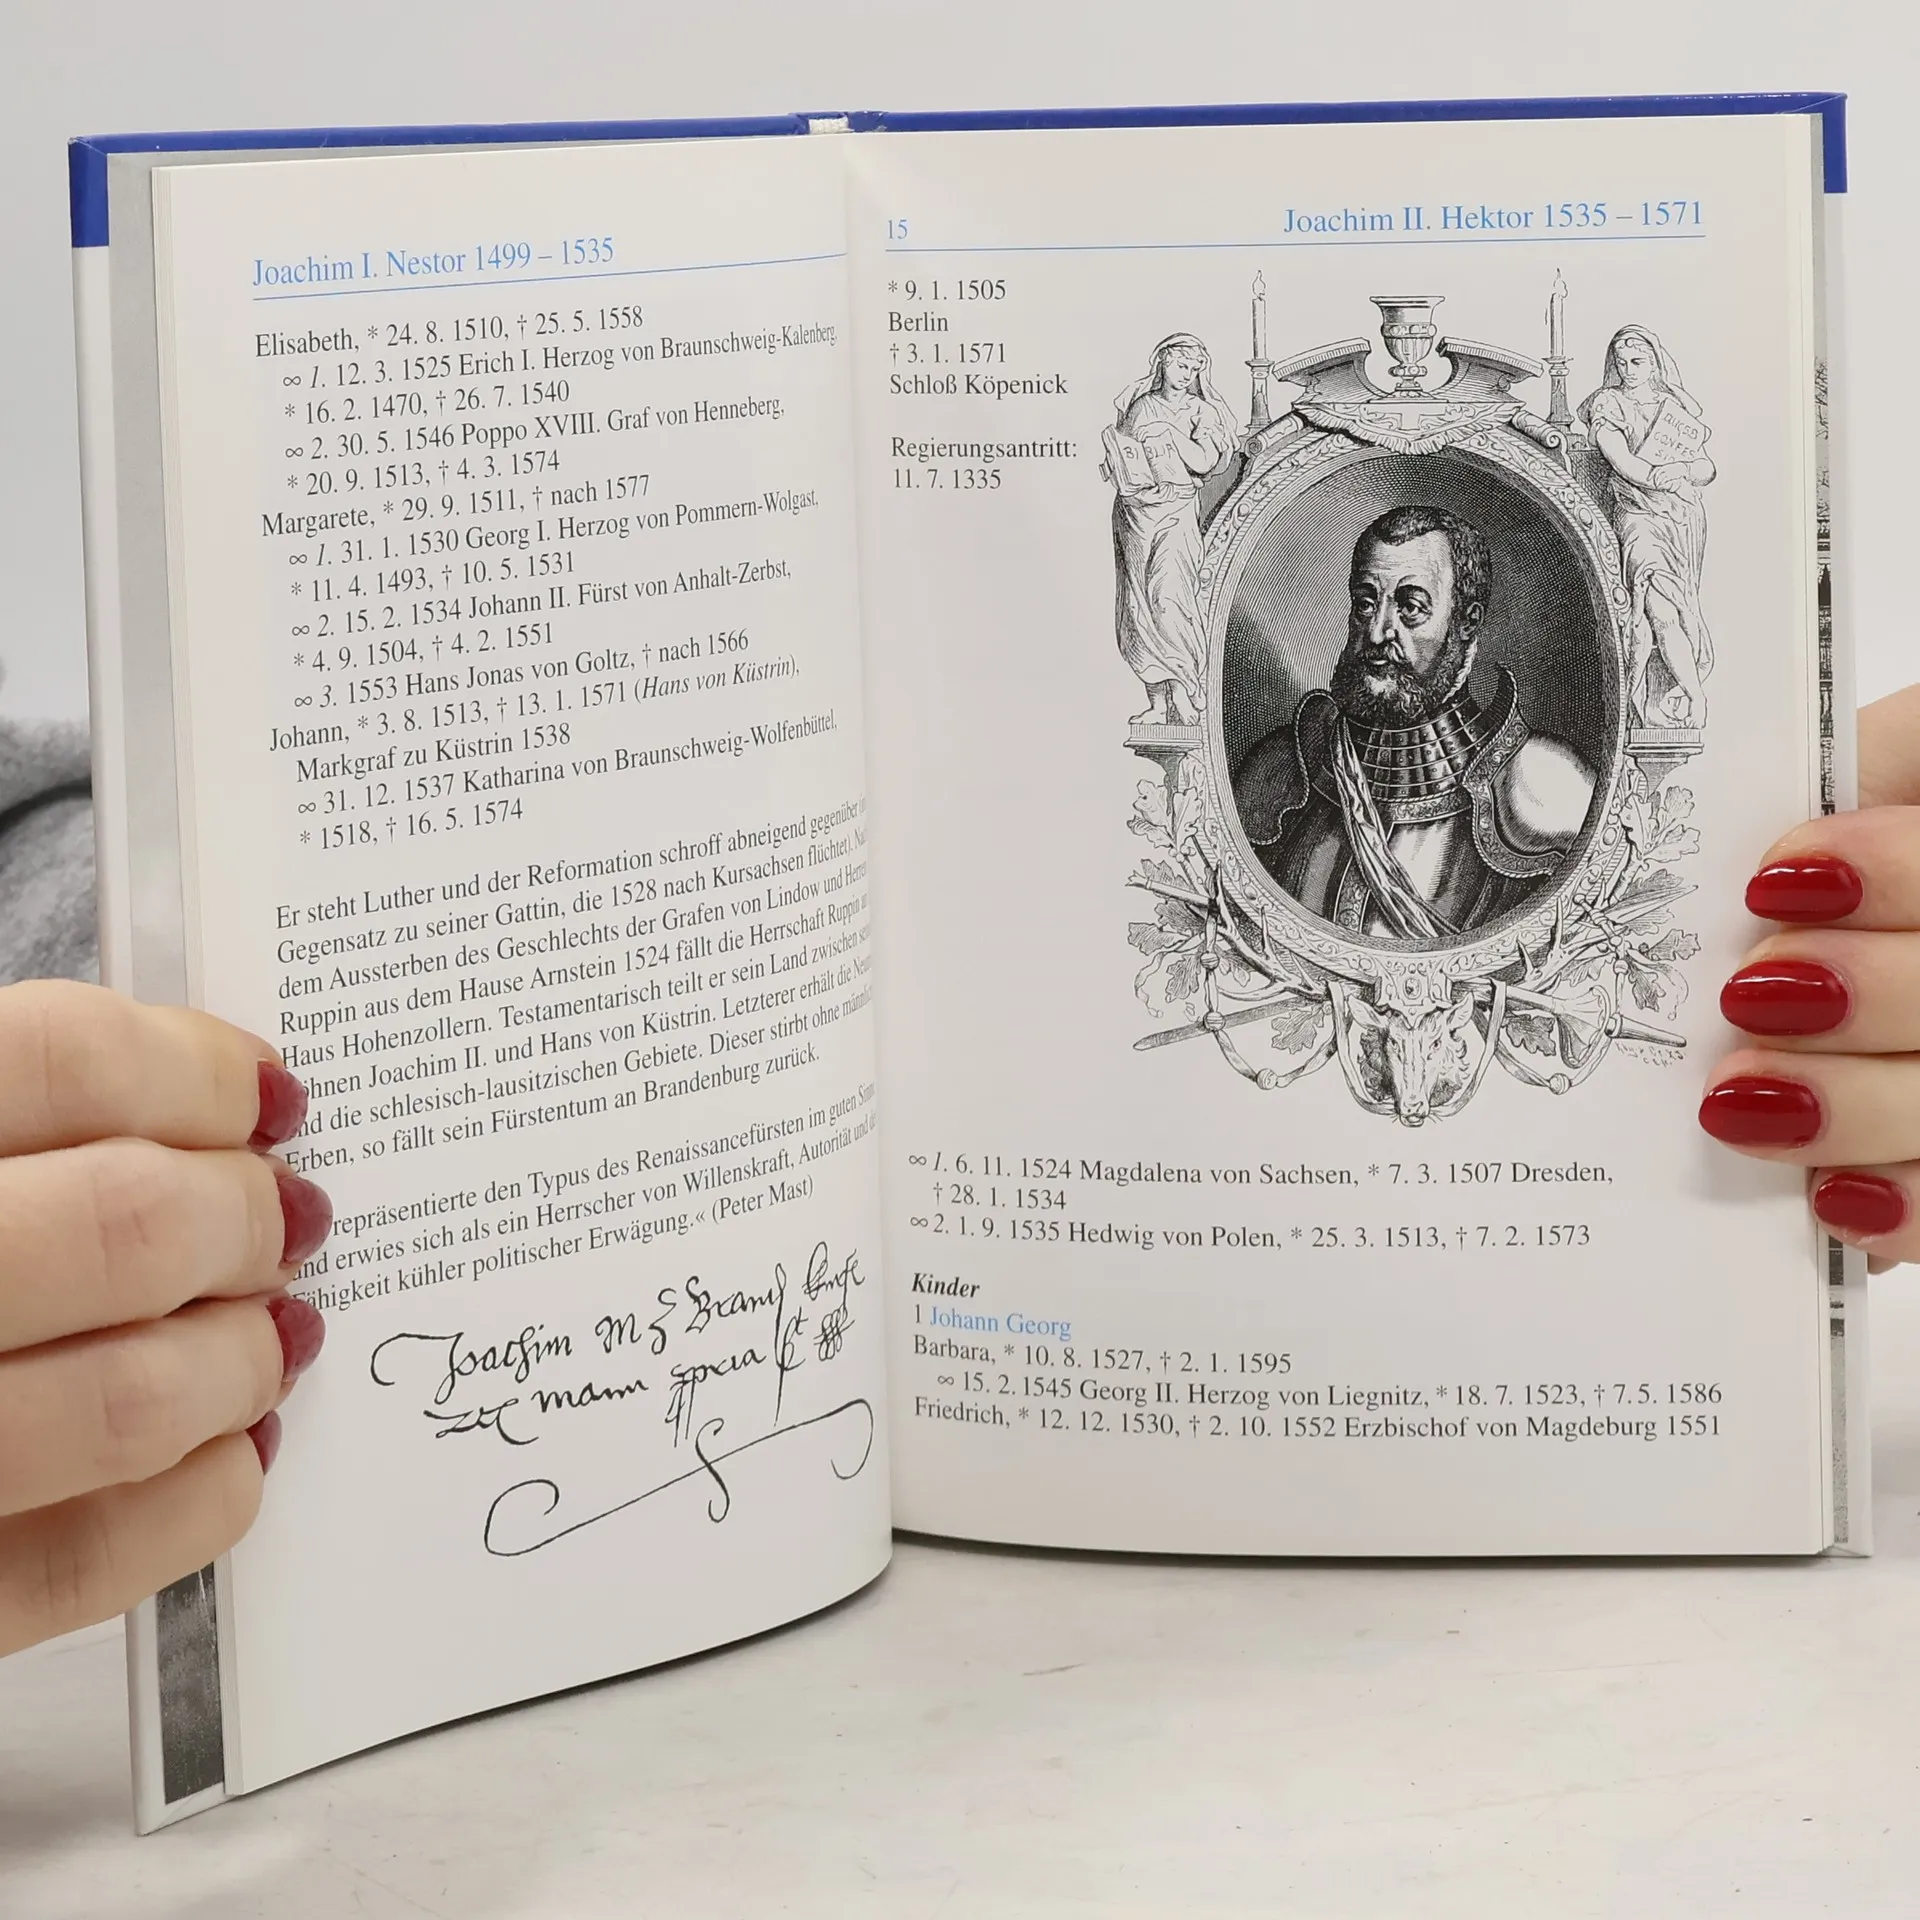 Joachim I. Nestor 1499 – 1535
Elisabeth, * 24. 8. 1510, † 25. 5. 1558
∞ 1. 12. 3. 1525 Erich I. Herzog von Braunschweig-Kalenberg,
* 16. 2. 1470, † 26. 7. 1540
∞ 2. 30. 5. 1546 Poppo XVIII. Graf von Henneberg,
* 20. 9. 1513, † 4. 3. 1574
Margarete, * 29. 9. 1511, † nach 1577
∞ 1. 31. 1. 1530 Georg I. Herzog von Pommern-Wolgast,
* 11. 4. 1493, † 10. 5. 1531
∞ 2. 15. 2. 1534 Johann II. Fürst von Anhalt-Zerbst,
* 4. 9. 1504, † 4. 2. 1551
∞ 3. 1553 Hans Jonas von Goltz, † nach 1566
Johann, * 3. 8. 1513, † 13. 1. 1571 (Hans von Küstrin),
Markgraf zu Küstrin 1538
∞ 31. 12. 1537 Katharina von Braunschweig-Wolfenbüttel,
* 1518, † 16. 5. 1574
Er steht Luther und der Reformation schroff abneigend gegenüber
Gegensatz zu seiner Gattin, die 1528 nach Kursachsen flüchtet).
dem Aussterben des Geschlechts der Grafen von Lindow und
Ruppin aus dem Hause Arnstein 1524 fällt die Herrschaft Ruppin
Haus Hohenzollern. Testamentarisch teilt er sein Land zwischen
öhnen Joachim II. und Hans von Küstrin. Letzterer erhält die
nd die schlesisch-lausitzischen Gebiete. Dieser stirbt ohne
Erben, so fällt sein Fürstentum an Brandenburg zurück.
repräsentierte den Typus des Renaissancefürsten im guten
und erwies sich als ein Herrscher von Willenskraft, Autorität und
Fähigkeit kühler politischer Erwägung.« (Peter Mast)
Joachim
15
Joachim II. Hektor 1535 – 1571
* 9. 1. 1505
Berlin
† 3. 1. 1571
Schloß Köpenick
Regierungsantritt:
11. 7. 1335
∞ 1. 6. 11. 1524 Magdalena von Sachsen, * 7. 3. 1507 Dresden,
† 28. 1. 1534
∞ 2. 1. 9. 1535 Hedwig von Polen, * 25. 3. 1513, † 7. 2. 1573
Kinder
1 Johann Georg
Barbara, * 10. 8. 1527, † 2. 1. 1595
∞ 15. 2. 1545 Georg II. Herzog von Liegnitz, * 18. 7. 1523, † 7. 5. 1586
Friedrich, * 12. 12. 1530, † 2. 10. 1552 Erzbischof von Magdeburg 1551